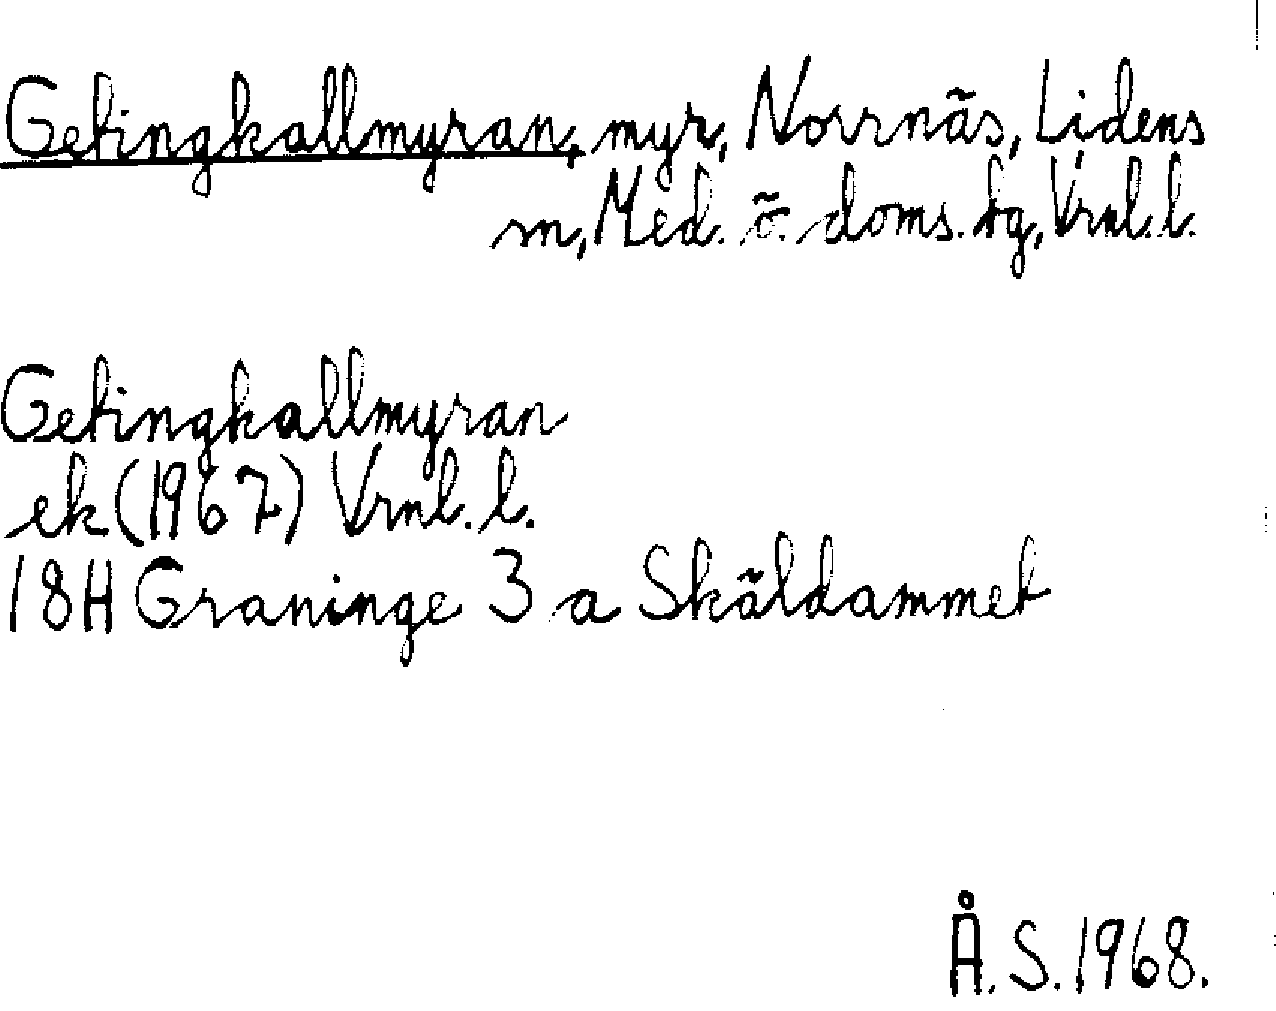 Getingkallmyran, myr, Norrnäs, Lidens
sn, Med. ö. doms. tg, Vrnl. l.
Getingkallmyran
ek (1967) Vrnl. l.
18H Graninge 3 a Skäldammet
Å. S. 1968.